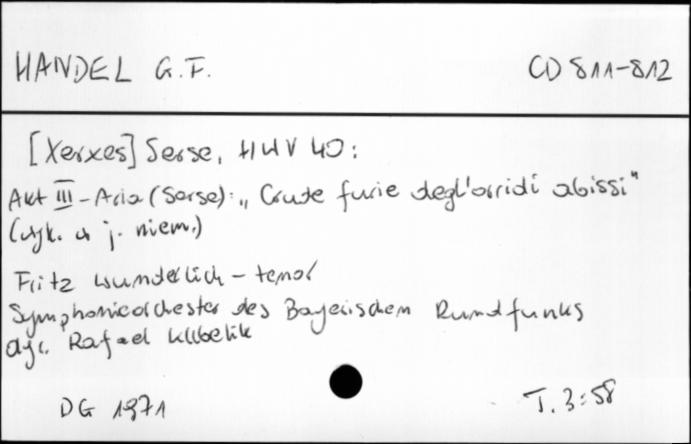 HANDEL G.F. CD 811-812
[Xerxes] Serse, HWV 40:
Akt III - Aria (Serse): „Crude furie degl'orridi abissi"
(wyk. w j. niem.)
Fritz Wunderlich - tenor
Symphonieorchester des Bayerischen Rundfunks
dyr. Rafael Kubelik
DG 1971 T. 3:58